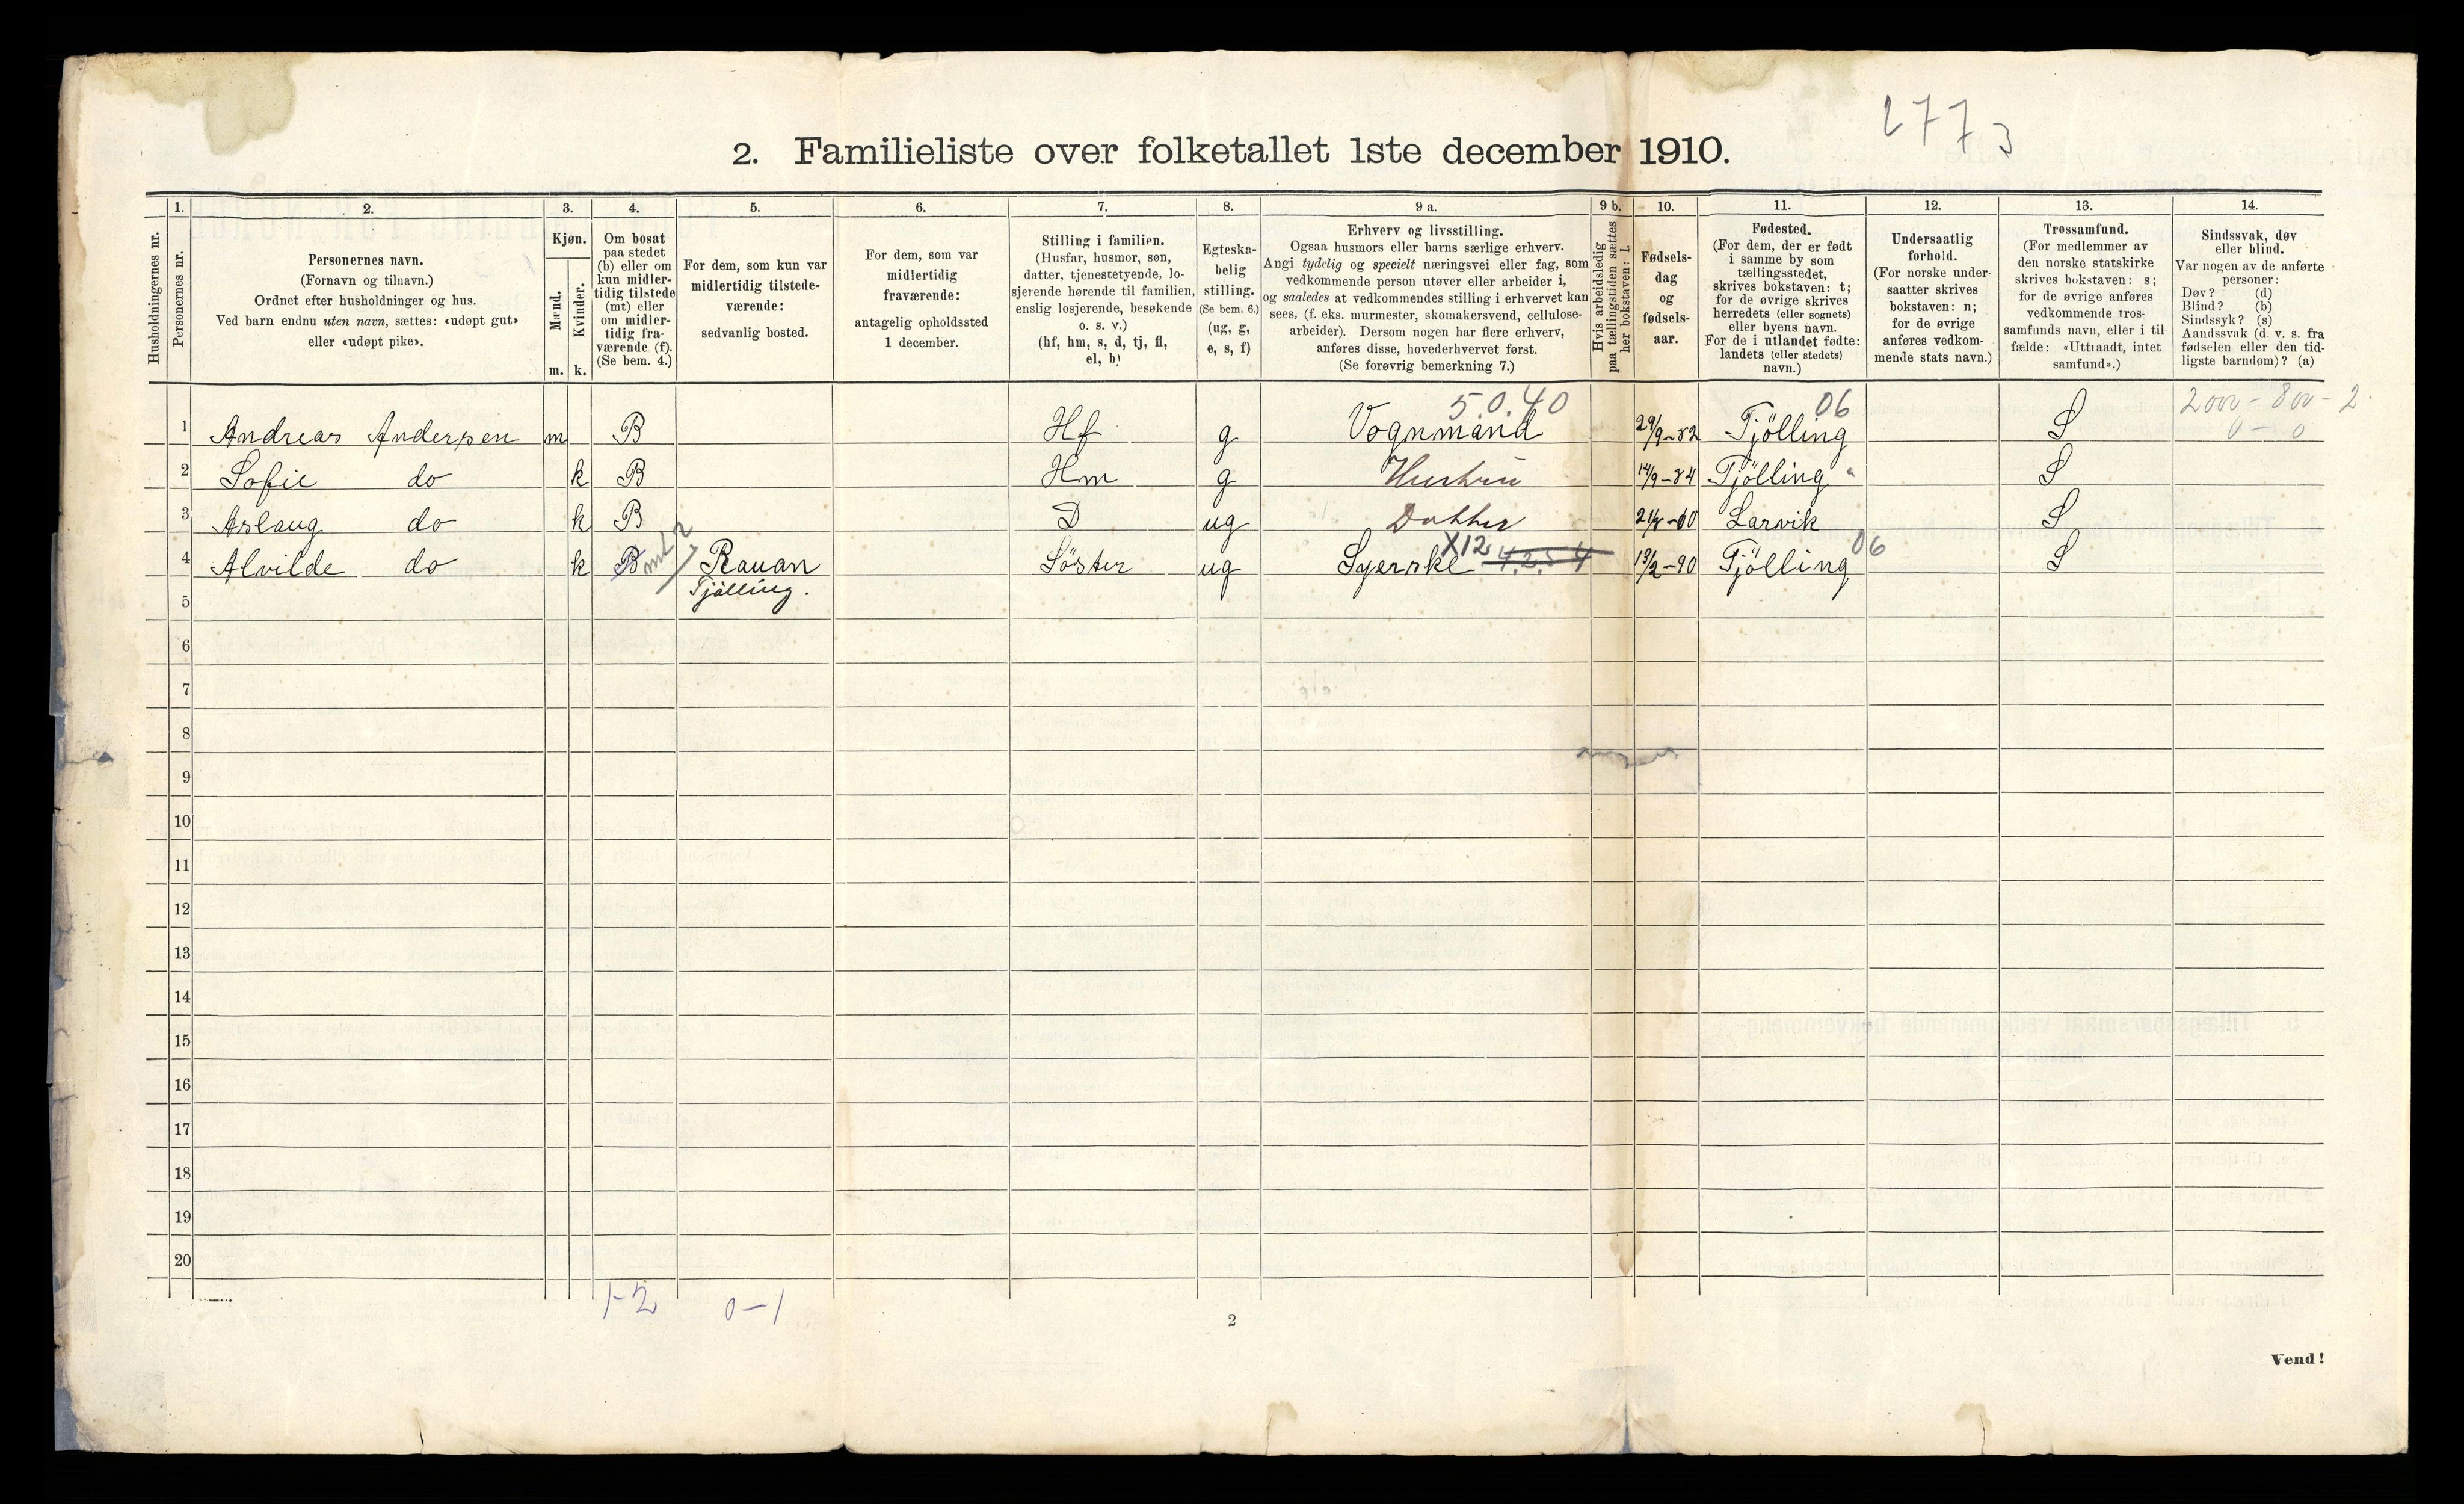 2773
2. Familieliste over folketallet 1ste december 1910.
1. 2. 3. 4. 5. 6. 7. 8. 9 a. 9 b. 10. 11. 12. 13. 14.
Husholdningernes nr.
Personernes nr.
Personernes navn.
(Fornavn og tilnavn.)
Ordnet efter husholdninger og hus.
Ved barn endnu uten navn, sættes: «udøpt gut»
eller «udøpt pike».
Kjøn.
Mænd.
m.
Kvinder.
k.
Om bosat
paa stedet
(b) eller om
kun midler-
tidig tilstede
(mt) eller
om midler-
tidig fra-
værende (f).
(Se bem. 4.)
For dem, som kun var
midlertidig tilstede-
værende:
sedvanlig bosted.
For dem, som var
midlertidig
fraværende:
antagelig opholdssted
1 december.
Stilling i familien.
(Husfar, husmor, søn,
datter, tjenestetyende, lo-
sjerende hørende til familien,
enslig losjerende, besøkende
o. s. v.)
(hf, hm, s, d, tj, fl,
el, b)
Egteska-
belig
stilling.
(Se bem. 6.)
(ug, g,
e, s, f)
Erhverv og livsstilling.
Ogsaa husmors eller barns særlige erhverv.
Angi tydelig og specielt næringsvei eller fag, som
vedkommende person utøver eller arbeider i,
og saaledes at vedkommendes stilling i erhvervet kan
sees, (f. eks. murmester, skomakersvend, cellulose-
arbeider). Dersom nogen har flere erhverv,
anføres disse, hovederhvervet først.
(Se forøvrig bemerkning 7.)
Hvis arbeidsledig
paa tællingstiden sættes
her bokstaven: l.
Fødsels-
dag
og
fødsels-
aar.
Fødested.
(For dem, der er født
i samme by som
tællingsstedet,
skrives bokstaven: t;
for de øvrige skrives
herredets (eller sognets)
eller byens navn.
For de i utlandet fødte:
landets (eller stedets)
navn.)
Undersaatlig
forhold.
(For norske under-
saatter skrives
bokstaven: n;
for de øvrige
anføres vedkom-
mende stats navn.)
Trossamfund.
(For medlemmer av
den norske statskirke
skrives bokstaven: s;
for de øvrige anføres
vedkommende tros-
samfunds navn, eller i til-
fælde: «Uttraadt, intet
samfund».)
Sindssvak, døv
eller blind.
Var nogen av de anførte
personer:
Døv? (d)
Blind? (b)
Sindssyk? (s)
Aandssvak (d. v. s. fra
fødselen eller den tid-
ligste barndom)? (a)
5.0.40 06 2000 - 800 - 2
1 Andreas Andersen m B Hf g Vognmand 29/9-82 Tjölling S 0 - 0
2 Sofie do k B Hm g Hustru 14/9-84 Tjölling " S
3 Aslaug do k B D ug Datter Larvik S
mt X12 06
4 Alvilde do k B Rauan Söster ug Syerske 4.2.5 4 13/2-90 Tjölling S
5 Tjölling.
6
7
8
9
10
11
12
13
14
15
16
17
18
19
20
1-2 0-1
2
Vend!